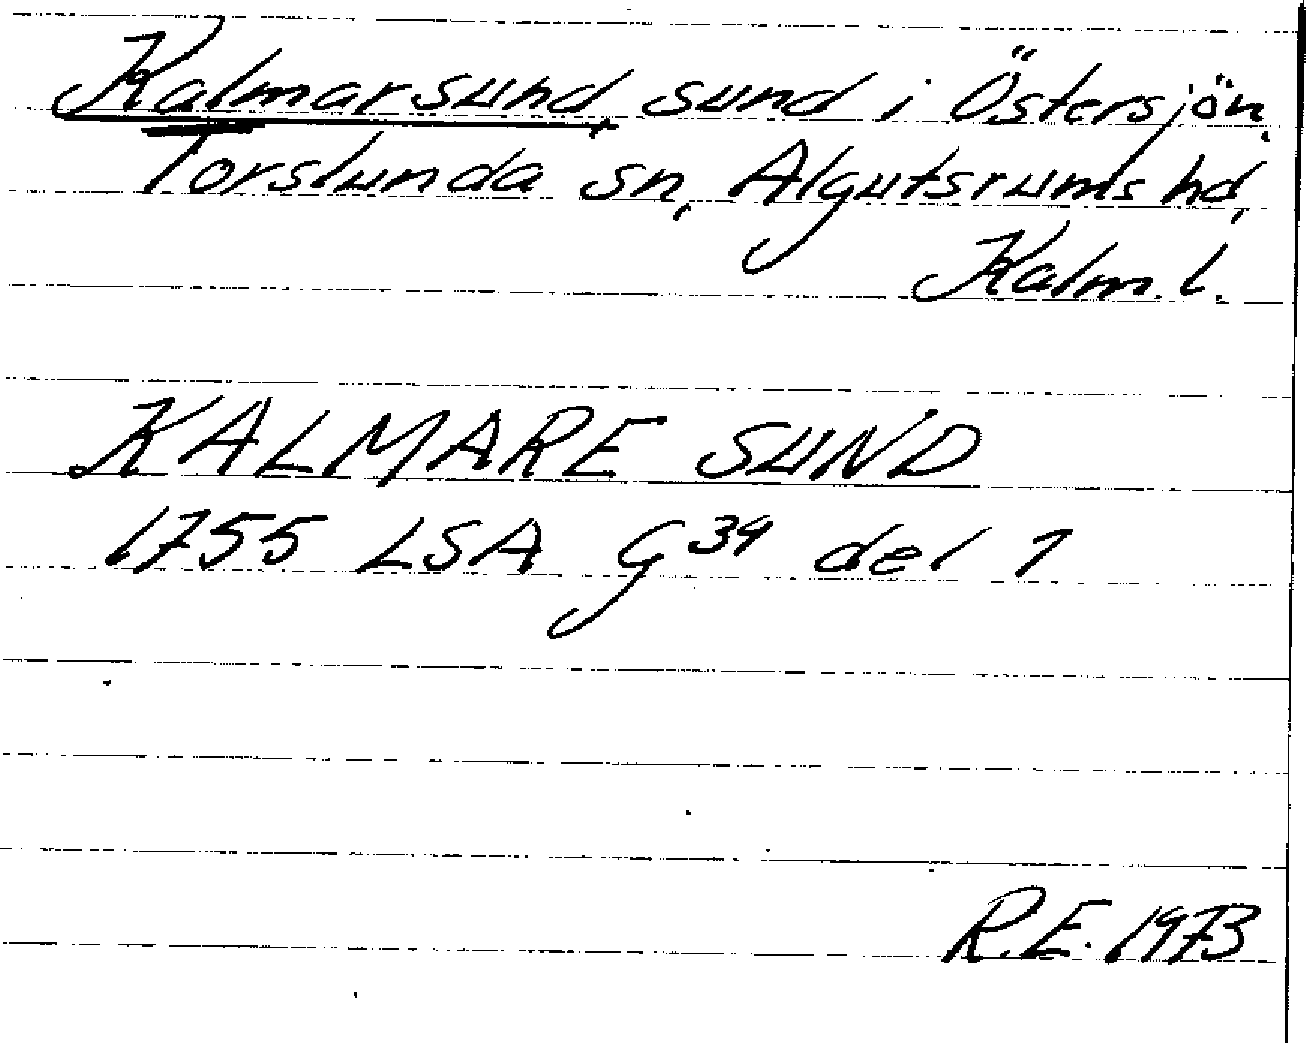 Kalmarsund, sund i Östersjön,
Torslunda sn, Algutsrums hd,
Kalm. l.
KALMARE SUND
1755 LSA G 39 del 1
R.E. 1973